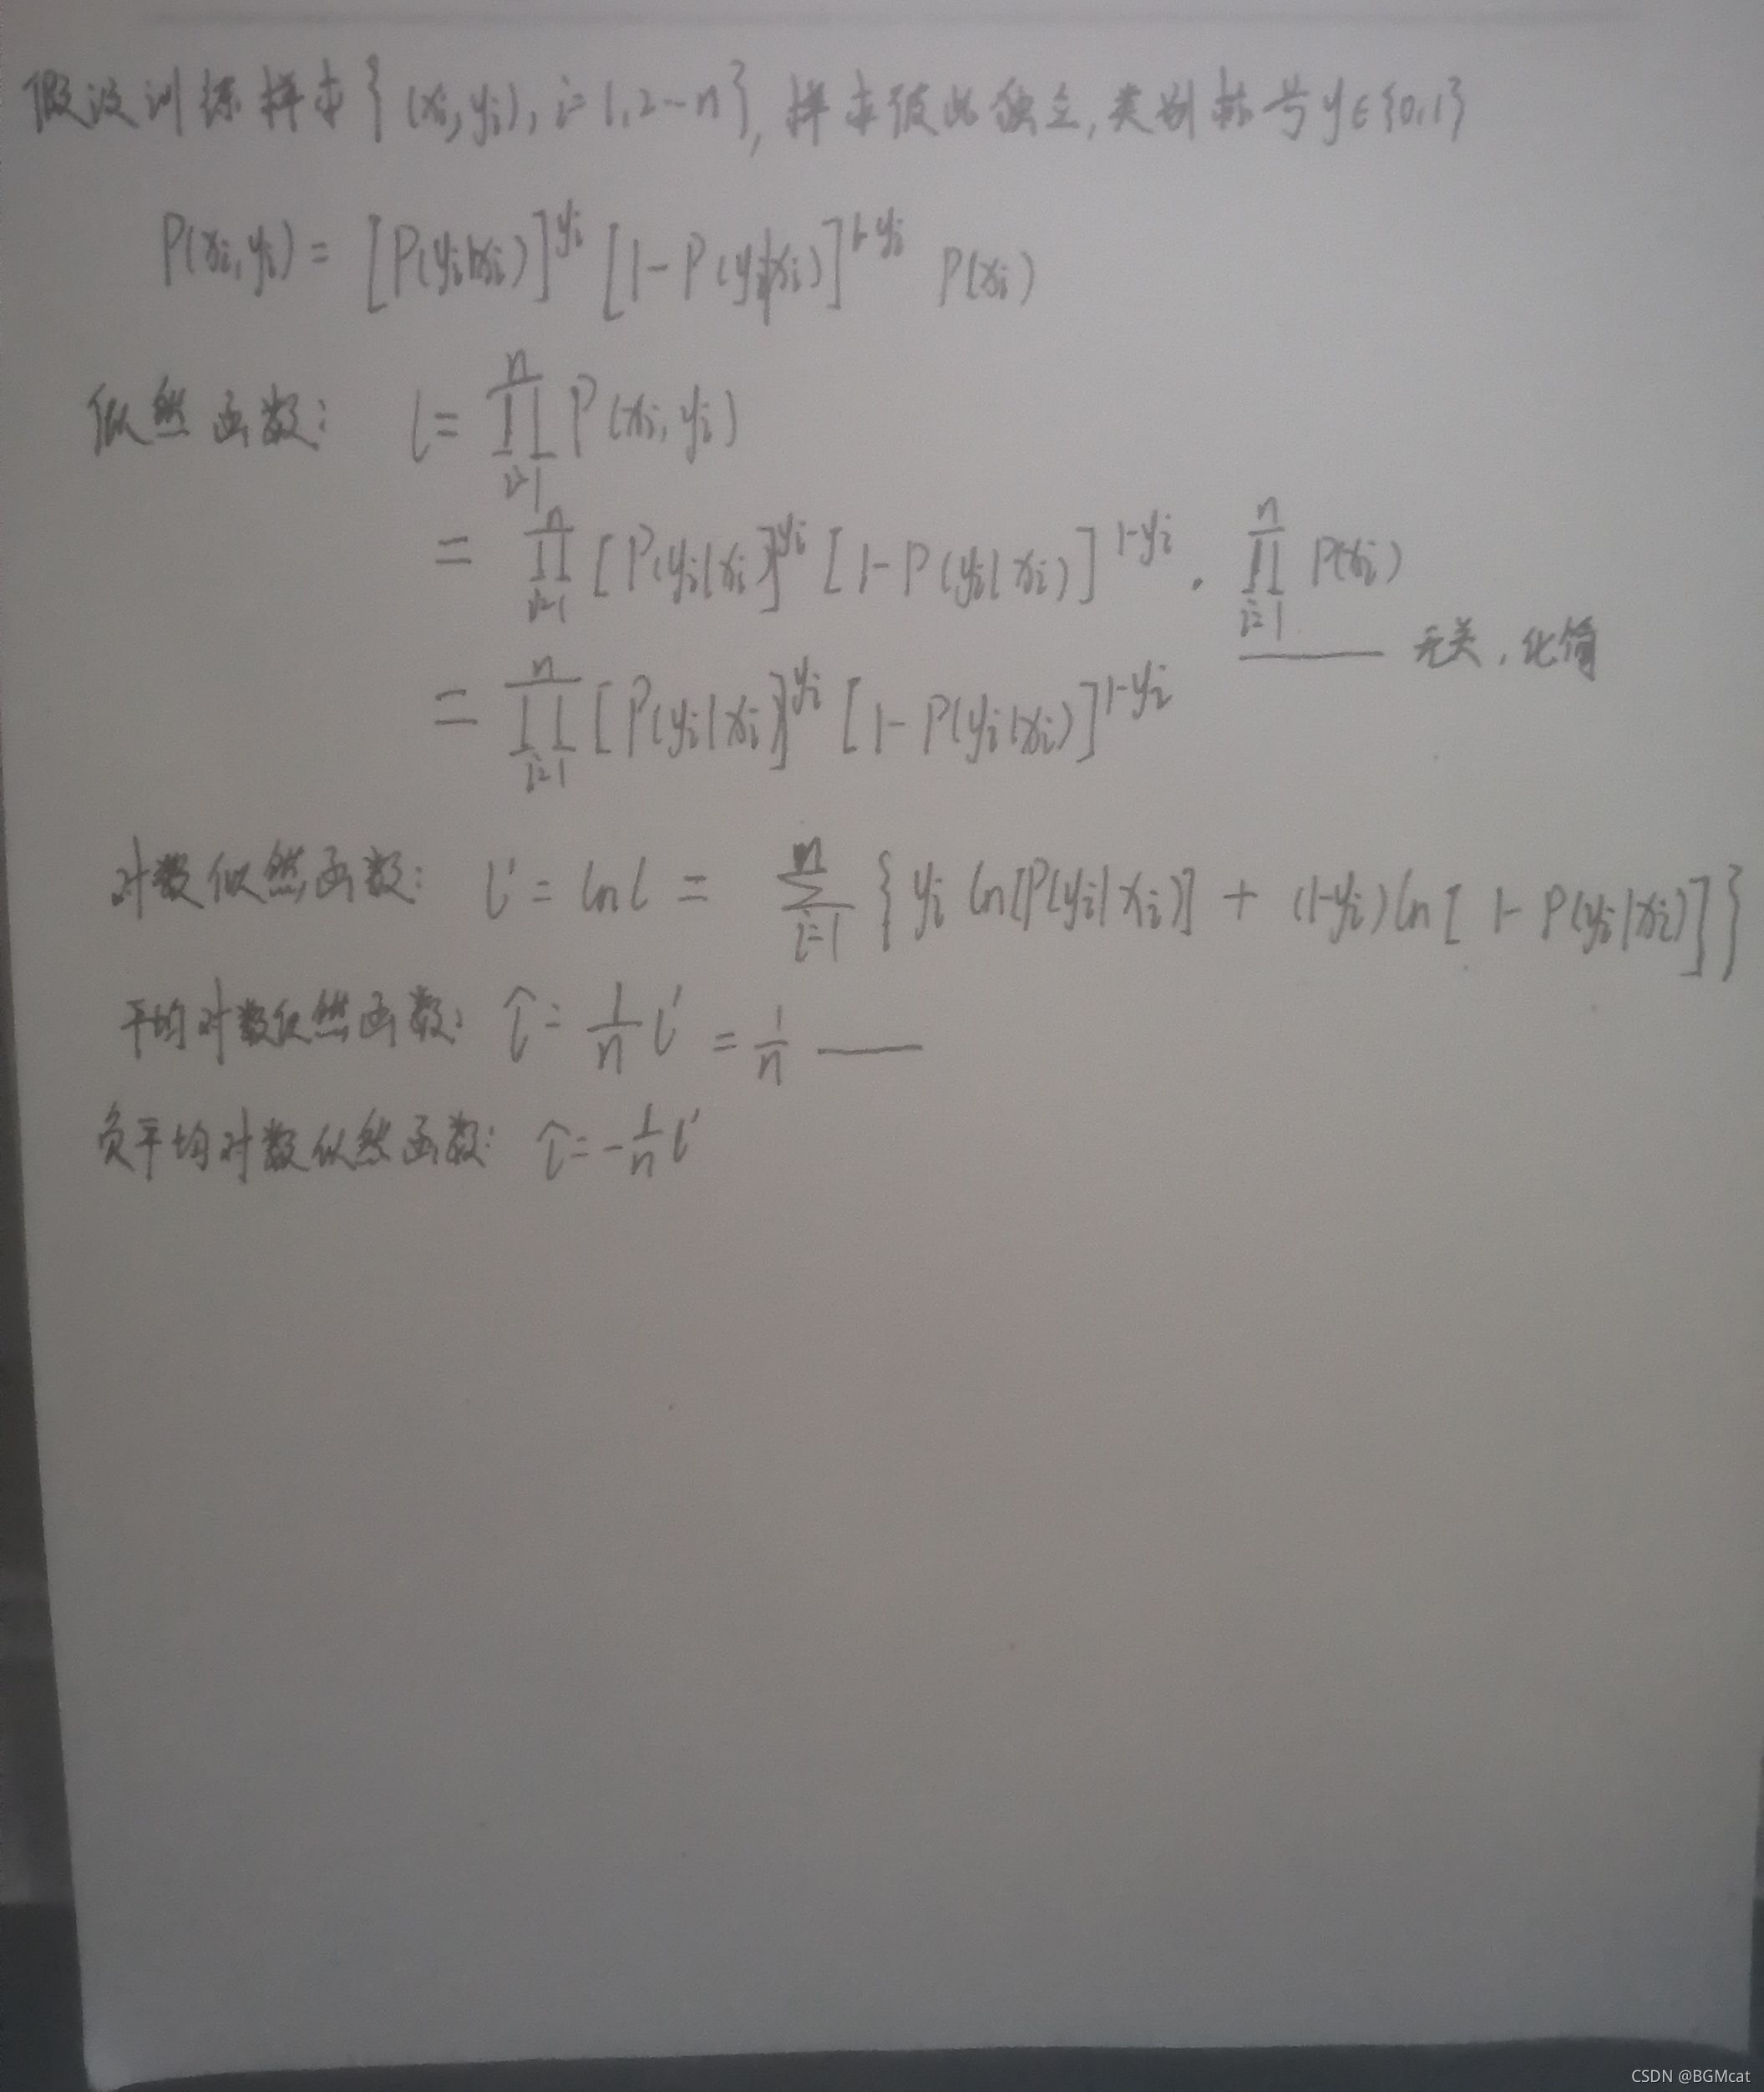 假设训练样本{(xi, yi), i=1,2…n}, 样本彼此独立, 类别标号 y∈{0,1}
P(xi, yi) = [P(yi|xi)]^yi [1-P(yi|xi)]^1-yi P(xi)
似然函数: l = ∏_{i=1}^{n} P(xi, yi)
= ∏_{i=1}^{n} [P(yi|xi]^yi [1-P(yi|xi)]^1-yi · ∏_{i=1}^{n} P(xi)
无关, 化简
= ∏_{i=1}^{n} [P(yi|xi]^yi [1-P(yi|xi)]^1-yi
对数似然函数: l' = ln l = ∑_{i=1}^{n} {yi ln[P(yi|xi)] + (1-yi) ln[1-P(yi|xi)]}
平均对数似然函数: l̂ = 1/n l' = 1/n ——
负平均对数似然函数: l̂ = -1/n l'
CSDN @BGMcat